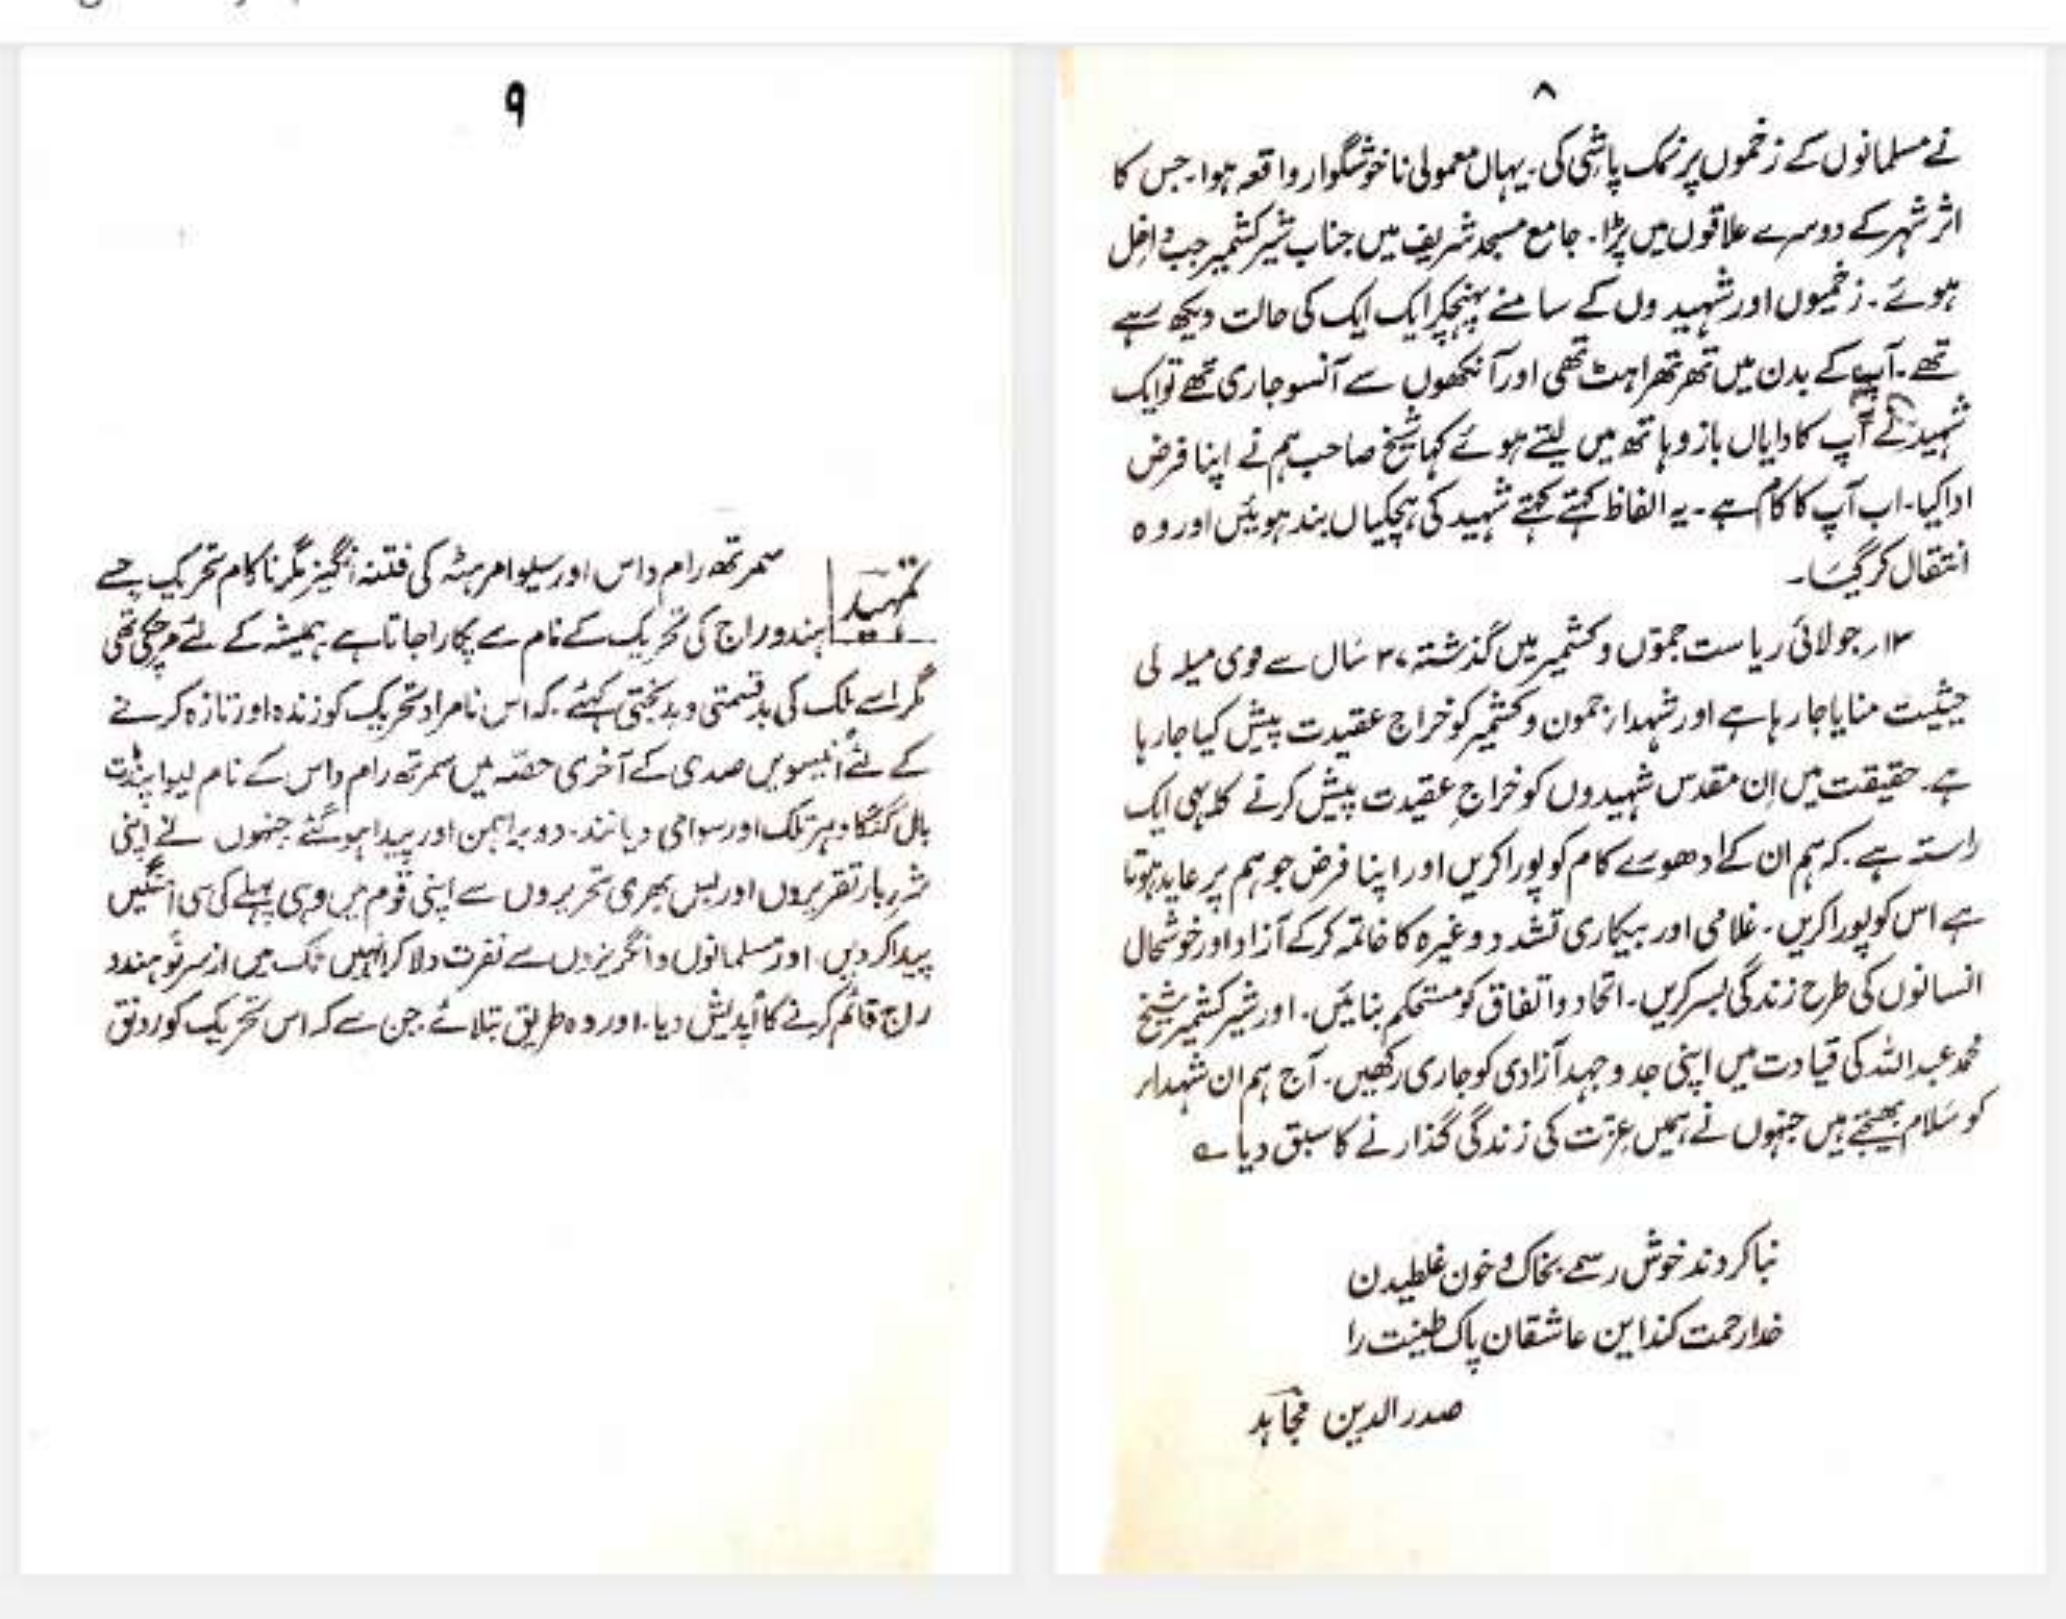 ۸
نے مسلمانوں کے زخموں پر نمک پاشی کی۔ یہاں معمولی ناخوشگوار واقعہ ہوا۔ جس کا
اثر شہر کے دوسرے علاقوں میں پڑا۔ جامع مسجد شریف میں جناب شیر کشمیر جب داخل
ہوئے۔ زخمیوں اور شہیدوں کے سامنے پہنچکر ایک ایک کی حالت دیکھ رہے
تھے۔ آپ کے بدن میں تھرتھراہٹ تھی اور آنکھوں سے آنسو جاری تھے تو ایک
شہید نے آپ کا دایاں بازو ہاتھ میں لیتے ہوئے کہا شیخ صاحب ہم نے اپنا فرض
ادا کیا۔ اب آپ کا کام ہے۔ یہ الفاظ کہتے کہتے شہید کی ہچکیاں بند ہوئیں اور وہ
انتقال کر گیا۔
۱۳ر جولائی ریاست جموں و کشمیر میں گذشتہ ۳۷ سال سے قومی میلہ کی
حیثیت منایا جا رہا ہے اور شہداء جموں و کشمیر کو خراج عقیدت پیش کیا جا رہا
ہے۔ حقیقت میں اِن مقدس شہیدوں کو خراجِ عقیدت پیش کرنے کا یہی ایک
راستہ ہے۔ کہ ہم ان کے ادھورے کام کو پورا کریں اور اپنا فرض جو ہم پر عاید ہوتا
ہے اس کو پورا کریں۔ غلامی اور بیکاری تشدد وغیرہ کا خاتمہ کر کے آزاد اور خوشحال
انسانوں کی طرح زندگی بسر کریں۔ اتحاد و اتفاق کو مستحکم بنائیں۔ اور شیر کشمیر شیخ
محمد عبداللہ کی قیادت میں اپنی جدوجہد آزادی کو جاری رکھیں۔ آج ہم ان شہداء
کو سلام بھیجتے ہیں جنہوں نے ہمیں عزت کی زندگی گذارنے کا سبق دیا ؎
بنا کردند خوش رسمے بخاک و خون غلطیدن
خدا رحمت کند این عاشقان پاک طینت را
صدرالدین مجاہد
۹
تمہید
سمرتھ رام داس اور سیوا مرہٹہ کی فتنہ انگیز مگر ناکام تحریک جسے
ہندو راج کی تحریک کے نام سے پکارا جاتا ہے۔ ہمیشہ کے لئے مر چکی تھی
مگر اسے ملک کی بدقسمتی و بدبختی کہئے۔ کہ اس نامراد تحریک کو زندہ اور تازہ کرنے
کے لئے اُنیسویں صدی کے آخری حصّہ میں سمرتھ رام داس کے نام لیوا پنڈت
بال گنگا دہر تلک اور سوامی دیانند۔ دو براہمن اور پیدا ہو گئے جنہوں نے اپنی
شرر بار تقریروں اور بس بھری تحریروں سے اپنی قوم میں وہی پہلے کی سی اُمنگیں
پیدا کر دیں۔ اور مسلمانوں و انگریزوں سے نفرت دلا کر انہیں ملک میں از سر نو ہندو
راج قائم کرنے کا اُپدیش دیا۔ اور وہ طریق بتلائے جن سے کہ اس تحریک کو رونق